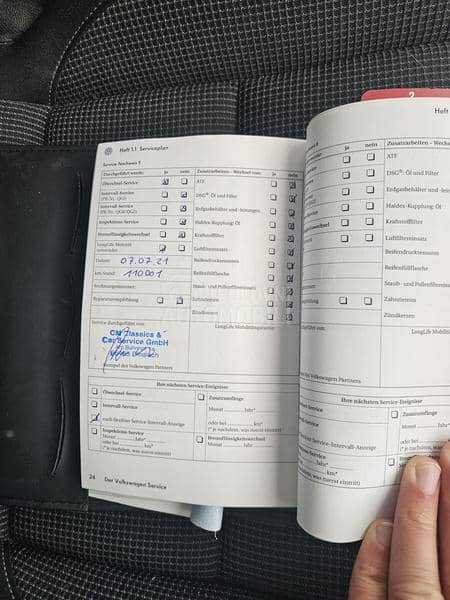 Heft 1.1 Serviceplan
Service-Nachweis 5
Durchgeführt wurde: ja nein
Ölwechsel-Service
Intervall-Service
Intervall-Service
Inspektions-Service
Bremsflüssigkeitswechsel
LongLife Motoröl
verwendet
Datum: 07.07.21
km-Stand: 110001
Rechnungsnummer:
Reparaturempfehlung
Service durchgeführt von:
CM Classics &
Car Service GmbH
Stempel des Volkswagen Partners
Zusatzarbeiten - Wechsel von: ja nein
ATF
DSG®-Öl und Filter
Erdgasbehälter und -leitungen
Haldex-Kupplung: Öl
Kraftstofffilter
Luftfiltereinsatz
Reifendrucksensoren
Reifenfüllflasche
Staub- und Pollenfiltereinsatz
Zahnriemen
Zündkerzen
LongLife Mobilitätsgarantie
Ihre nächsten Service-Ereignisse
Ölwechsel-Service
Intervall-Service
nach flexibler Service-Intervall-Anzeige
Inspektions-Service
Monat Jahr*
oder bei km*
(* je nachdem, was zuerst eintritt)
Zusatzumfänge
Monat Jahr*
oder bei km*
(* je nachdem, was zuerst eintritt)
Bremsflüssigkeitswechsel
Monat Jahr*
24 Der Volkswagen Service
2
Heft
ja nein
Zusatzarbeiten - Wechse
ATF
DSG®-Öl und Filter
Erdgasbehälter und -leit
Haldex-Kupplung: Öl
Kraftstofffilter
Luftfiltereinsatz
Reifendrucksensoren
Reifenfüllflasche
Staub- und Pollenfilter
Zahnriemen
Zündkerzen
LongLife Mob
Volkswagen Partners
Ihre nächsten Service-Ereignisse
Zusatzumfänge
Monat
oder bei
(* je nachdem,
Bremsflüssigkeits